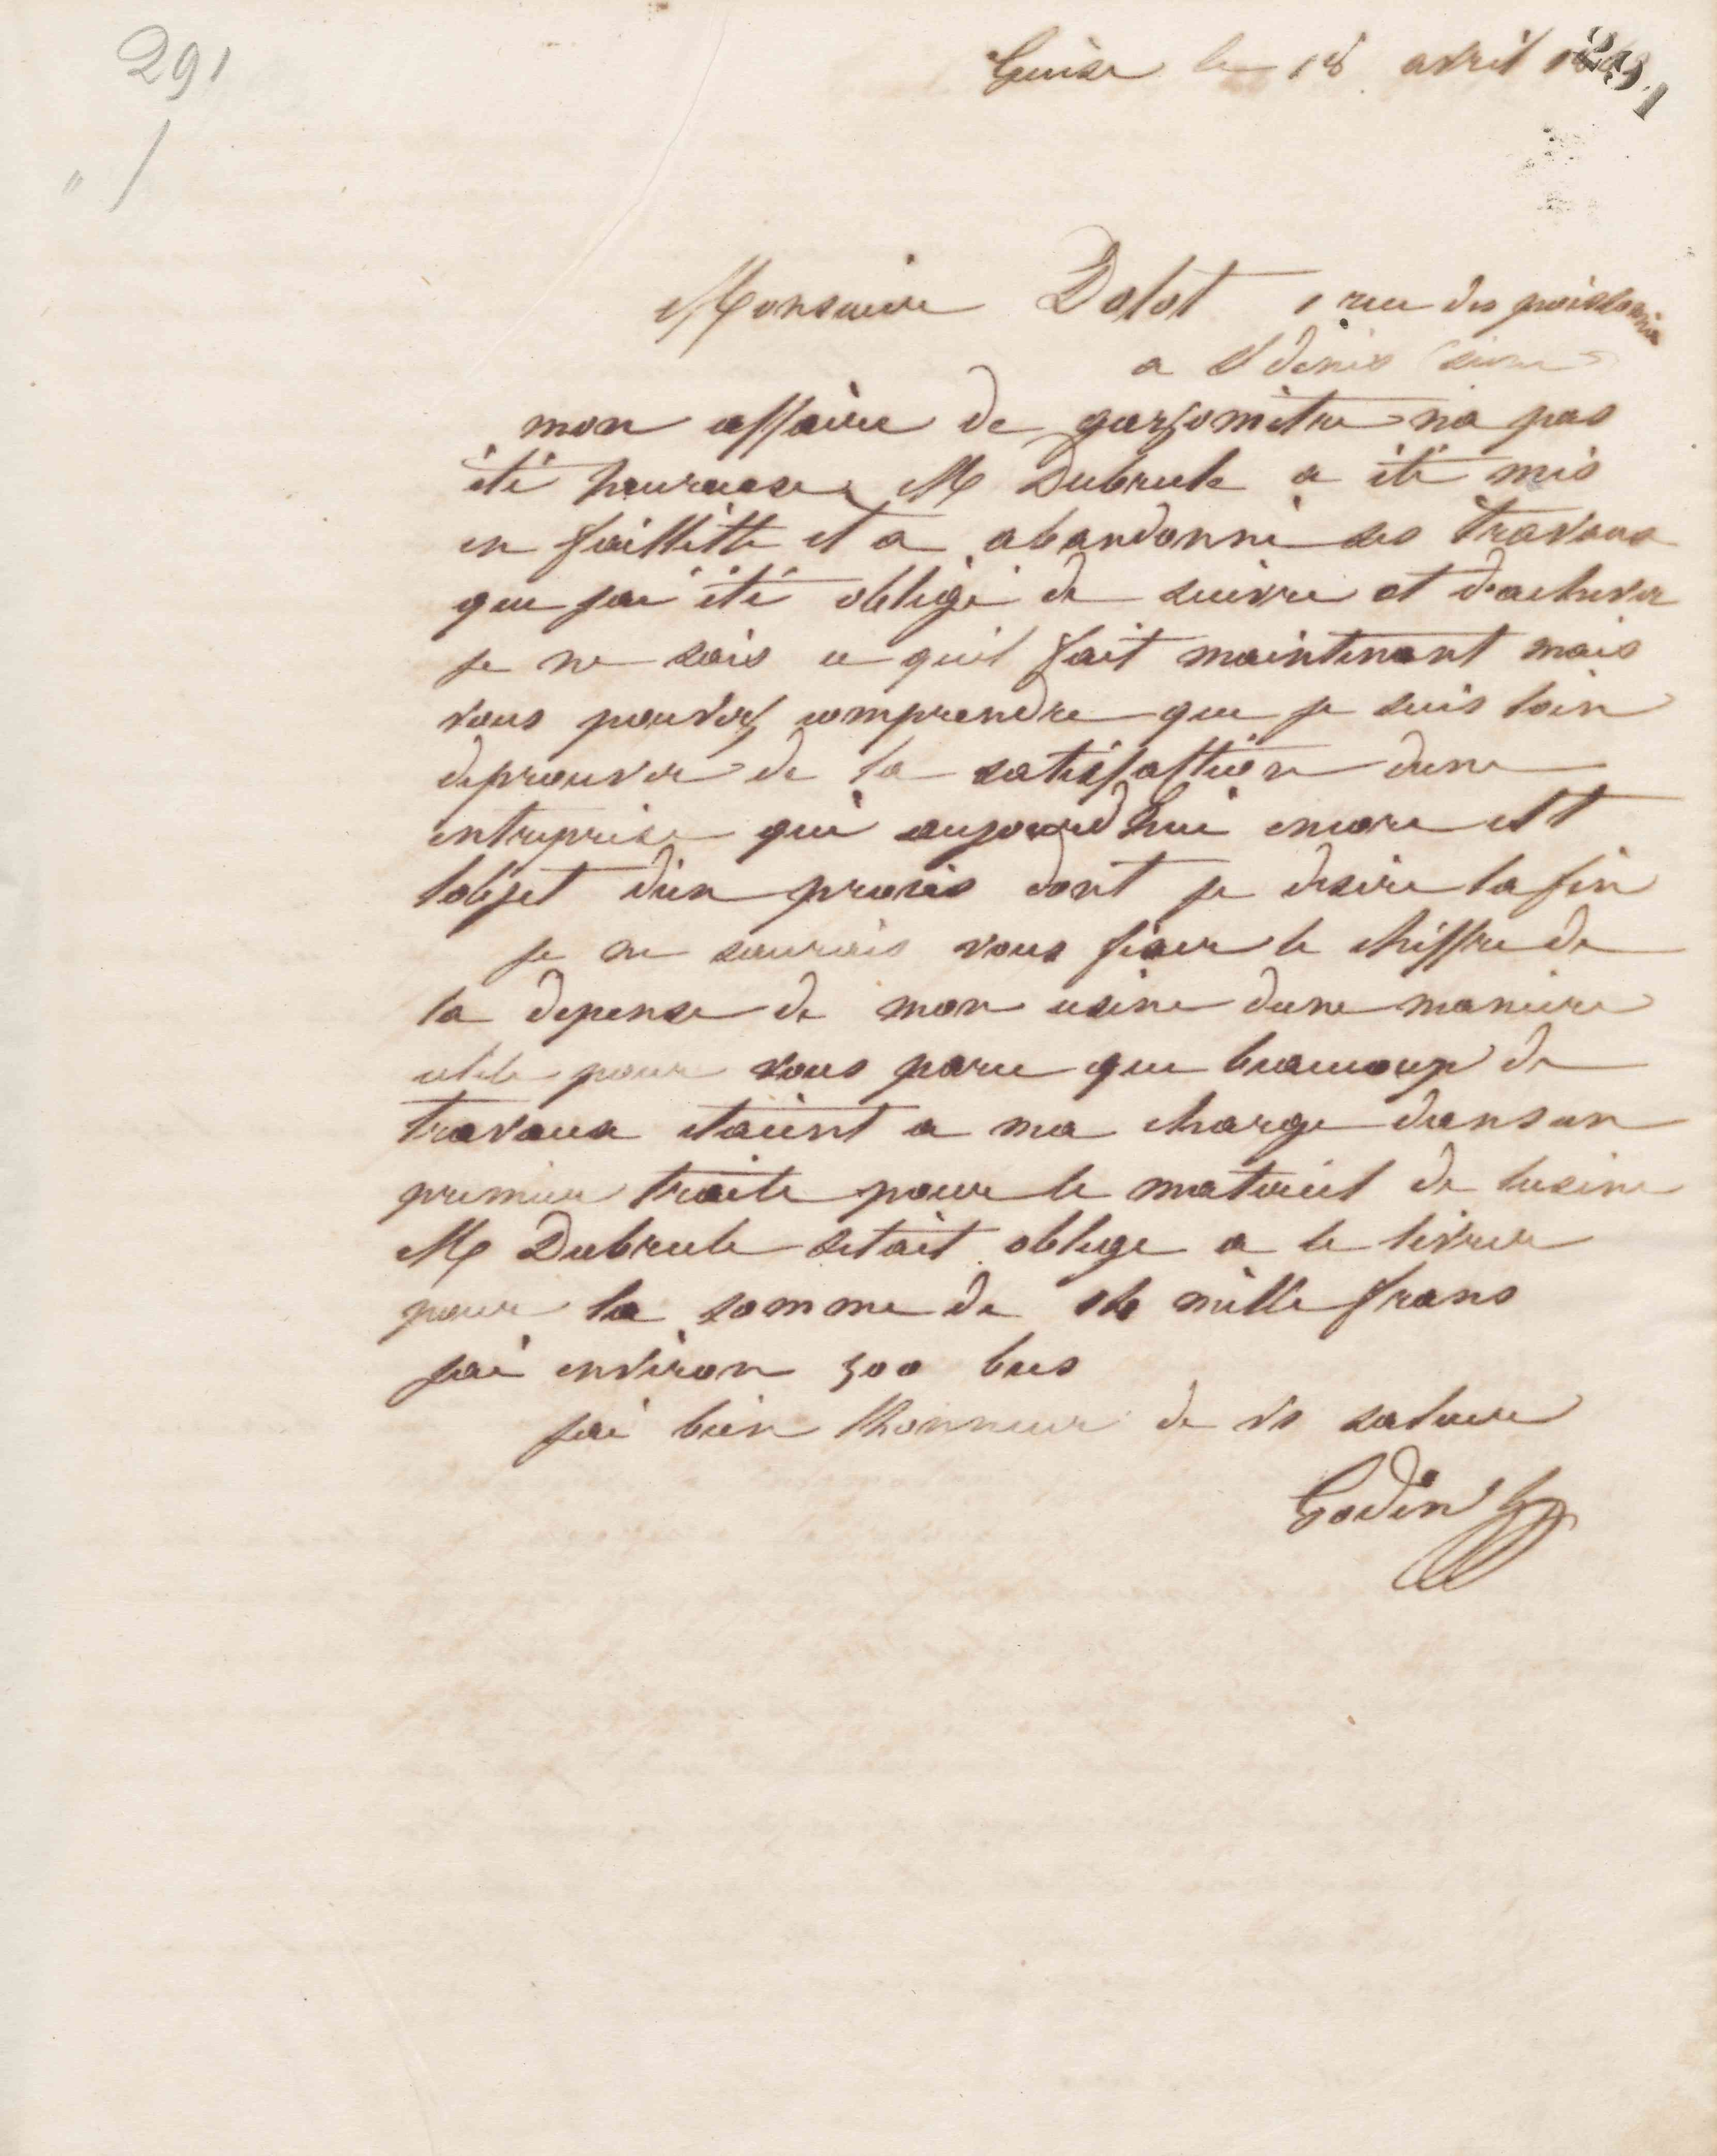 291
291
Guise le 18 avril
Monsieur Dolot 1 rue des poissonnier
a St denis (seine)
mon affaire de gazjomètre na pas
été heureuse M Dubrule a été mis
en faillitte et a abandonné ses travaux
que jai été obligé de suivre et d'achever
je ne sais ce quil fait maintenant mais
vous pouvez comprendre que je suis loin
deprouver de la satisfaction dune
entreprise qui aujourd'hui encore est
lobjet d'un procès dont je desire la fin
je ne saurais vous fixer le chiffre de
la depense de mon usine dune maniere
utile pour vous parce que beaucoup de
travaux etaient a ma charge dans un
premier traite pour le materiel de lusine
M Dubrule setait obligé a le livrer
pour la somme de mille frans
jai environ 300 becs
jai bien lhonneur de vs saluer
Godin